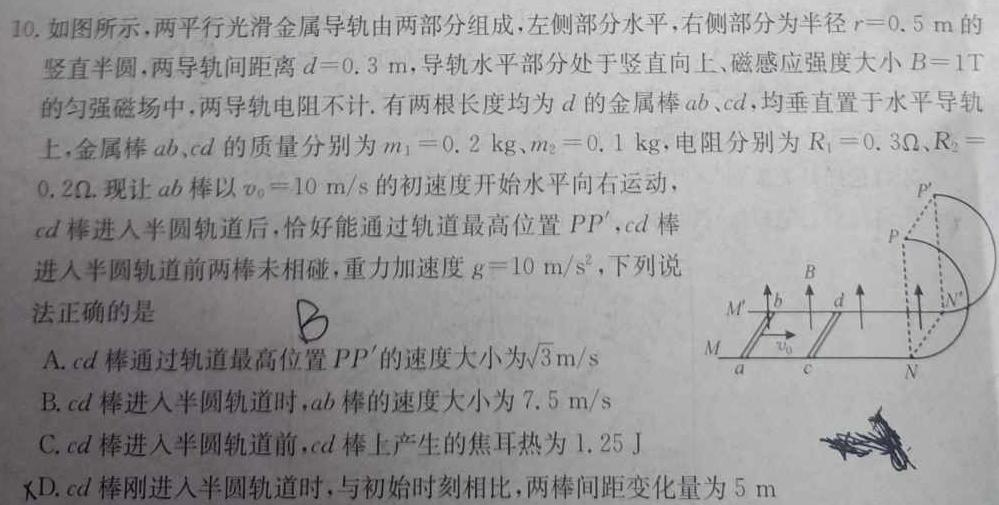 10. 如图所示,两平行光滑金属导轨由两部分组成,左侧部分水平,右侧部分为半径 r=0.5 m 的
竖直半圆,两导轨间距离 d=0.3 m,导轨水平部分处于竖直向上、磁感应强度大小 B=1T
的匀强磁场中,两导轨电阻不计. 有两根长度均为 d 的金属棒 ab、cd,均垂直置于水平导轨
上,金属棒 ab、cd 的质量分别为 m₁=0.2 kg、m₂=0.1 kg,电阻分别为 R₁=0.3Ω、R₂=
0.2Ω. 现让 ab 棒以 v₀=10 m/s 的初速度开始水平向右运动,
cd 棒进入半圆轨道后,恰好能通过轨道最高位置 PP′,cd 棒
进入半圆轨道前两棒未相碰,重力加速度 g=10 m/s²,下列说
法正确的是
B
A. cd 棒通过轨道最高位置 PP′的速度大小为√3 m/s
B. cd 棒进入半圆轨道时,ab 棒的速度大小为 7.5 m/s
C. cd 棒进入半圆轨道前,cd 棒上产生的焦耳热为 1.25 J
×D. cd 棒刚进入半圆轨道时,与初始时刻相比,两棒间距变化量为 5 m
P′
P
B
M′ b d N′
M v₀
a c N